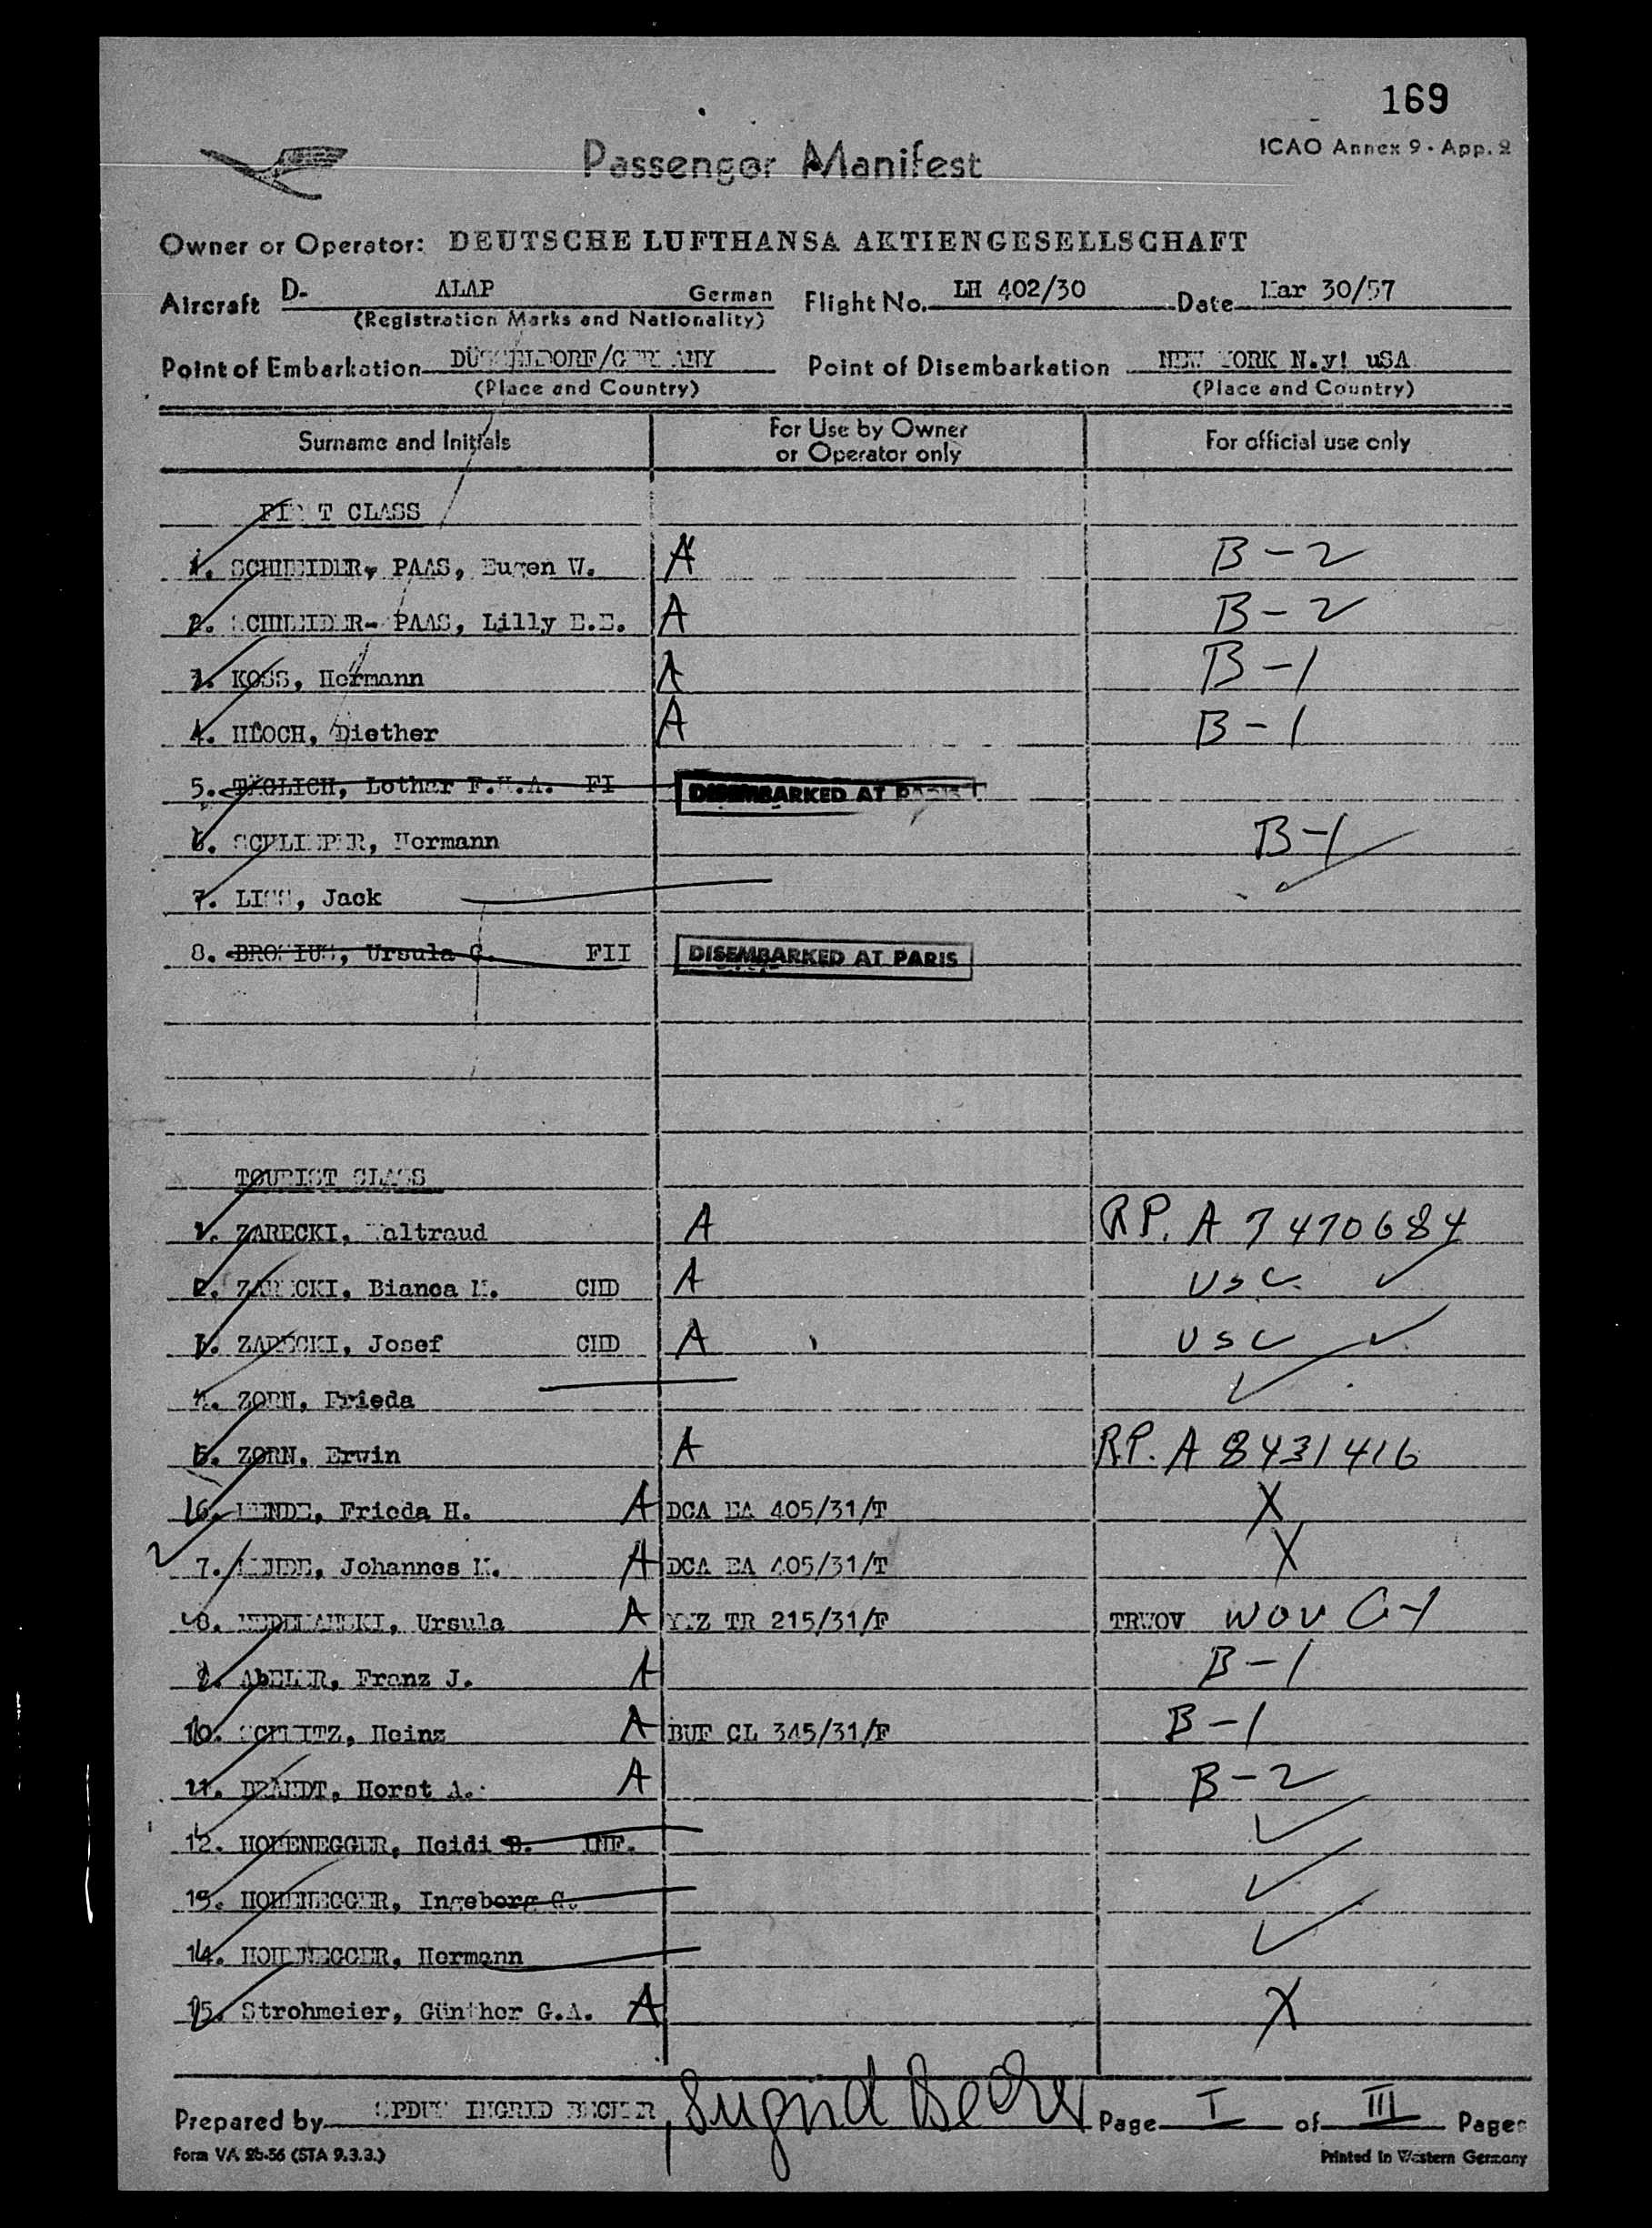 169
ICAO Annex 9 - App. 2
Passenger Manifest
Owner or Operator: DEUTSCHE LUFTHANSA AKTIENGESELLSCHAFT
Aircraft D- ALAP German Flight No. LH 402/30 Date Mar 30/57
(Registration Marks and Nationality)
Point of Embarkation DÜSSELDORF/GERMANY Point of Disembarkation NEW YORK N.y! uSA
(Place and Country) (Place and Country)
Surname and Initials For Use by Owner or Operator only For official use only
FIRST CLASS
1. SCHNEIDER- PAAS, Eugen W. A B-2
2. SCHNEIDER- PAAS, Lilly E.E. A B-2
3. KOSS, Hermann A B-1
4. Diether A B-1
5. TÄGLICH, Lothar FI DISEMBARKED AT PARIS
6. SCHLIEPER, Hermann B-1
7. LISS, Jack
8. BROSIUS, Ursula FII DISEMBARKED AT PARIS
TOURIST CLASS
1. ZARECKI, Waltraud A RP. A 7470684
2. ZARECKI, Bianca M. CHD A USC
3. ZARECKI, Josef CHD A USC
4. ZORN, Frieda
5. ZORN, Erwin A RP. A 8431416
6. MENDE, Frieda H. A DCA EA 405/31/T X
7. MENDE, Johannes M. A DCA EA 405/31/T X
8. Ursula A YYZ TR 215/31/F TRWOV WOV
9. ABELER, Franz J. A B-1
10. SCHMITZ, Heinz A BUF CL 345/31/F B-1
11. BRANDT, Horst A. A B-2
12. HOHENEGGER, Heidi B. INF.
13. HOHENEGGER, Ingeborg C.
14. HOHENEGGER, Hermann
15. Strohmeier, Günther G.A. A X
Prepared by INGRID BECKER, Ingrid Becker Page I of III Pages
Form VA 2b-56 (STA 9.3.3.) Printed in Western Germany